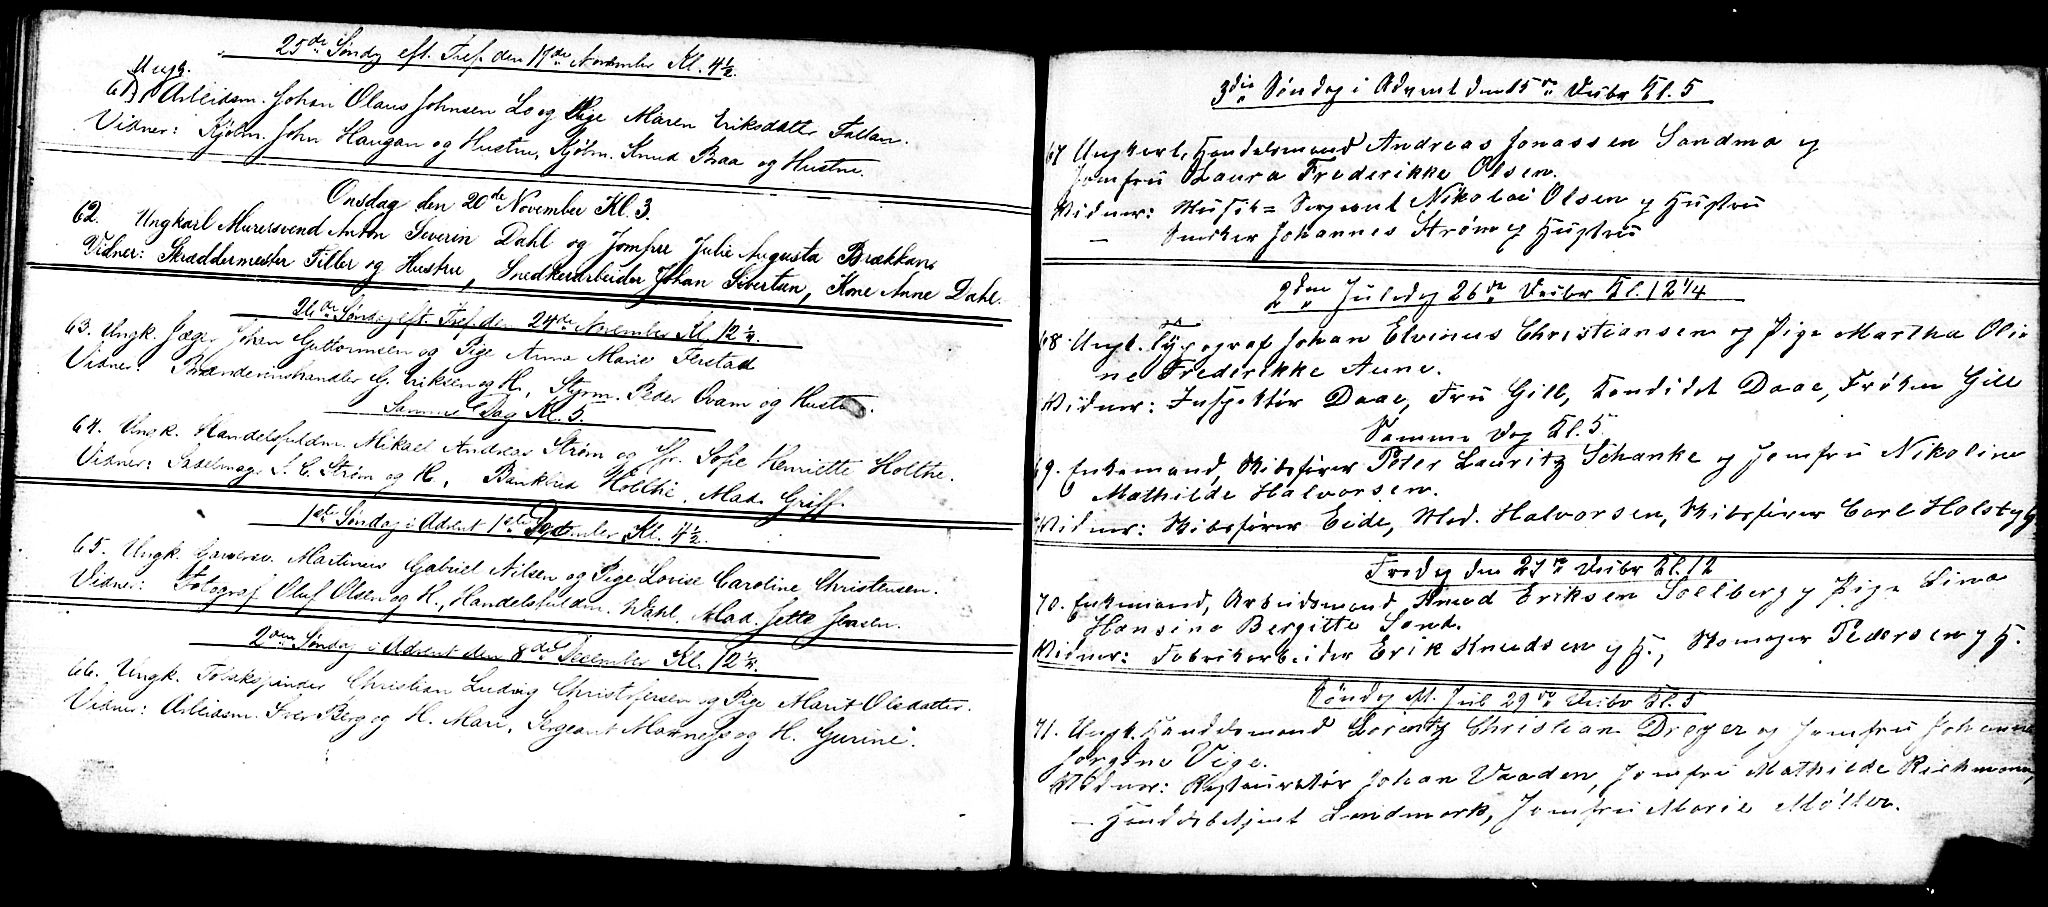 25de Søndg eft. Tref. den 17de November Kl. 4½.
Ungk.
61) Arbeidsm. Johan Olaus Johnsen Lo og Pige Maren Eriksdatter Fallan.
Vidner: Kjøbm. John Haugan og Hustru, Kjøbm. Knud Braa og Hustru.
Onsdag den 20de November Kl. 3.
62. Ungkarl Murersvend Anton Severin Dahl og Jomfru Julie Augusta Brækkan.
Vidner: Skræddermester Tiller og Hustru, Snedkerarbeider Johan Sivertsen, Kone Anne Dahl.
26de Søndag eft. Tref. den 24de November Kl. 12¼.
63. Ungk. Jæger Johan Guttormsen og Pige Anna Marie Ferstad
Vidner: Brændevinshandler G. Eriksen og H., Styrm. Peder Qvam og Hustru.
Samme Dag Kl. 5.
64. Ungk. Handelsfuldm. Mikael Andreas Strøm og Jfr. Sofie Henriette Holthe.
Vidner: Sadelmager J. C. Strøm og H., Holthe, Mad. Griff.
1ste Søndag i Advent 1ste December Kl. 4½.
65. Ungk. Martinus Gabriel Nilsen og Pige Lovise Caroline Christensen.
Vidner: Fotograf Oluf Olsen og H., Handelsfuldm. Wahl, Mad. Jette Jensen.
2den Søndag i Advent den 8de December Kl. 12¼.
66. Ungk. Tobakspinder Christian Ludvig Christofersen og Pige Marit Olsdatter.
Vidner: Arbeidsm. Iver Berg og H. Mari, Sergeant Mannes og H. Gurine.
3die Søndag i Advent den 15de Decbr Kl. 5
67 Ungkarl, Handelsmand Andreas Jonassen Sandmo og
Jomfru Laura Frederikke Olsen.
Vidner: Musik= Sergeant Nikolai Olsen og Hustru
— Snedker Johannes Strøm og Hustru
2den Juledag 26de Decbr Kl. 12¼
68 Ungk. Typograf Johan Elvinus Christiansen og Pige Martha Olia
ne Frederikke Aune.
Vidner: Inspektør Daae, Fru Gill, Kandidat Daae, Frøken Gill
Samme Dag Kl. 5.
69. Enkemand, Skibsfører Peter Lauritz Schanke og Jomfru Nikoline
Mathilde Halvorsen.
Vidner: Skibsfører Eide, Mad. Halvorsen, Skibsfører Carl Holst og H.
Fredag den 27de Decbr Kl. 12
70. Enkemand, Arbeidsmand Knud Eriksen Solberg og Pige Lina
Hansine Bergitte Sand.
Vidner: Fabrikarbeider Erik Knudsen og H., Skomager Pedersen og H.
Søndag M. Jul 29de Decbr Kl. 5
71. Ungk. Handelsmand Lorentz Christian Dreyer og Jomfru Johanna
Jørgine Vige.
Vidner: Restauratør Johan Vaaden, Jomfru Mathilde Richmann,
— Handelsbetjent Landmark, Jomfru Marie Møller.